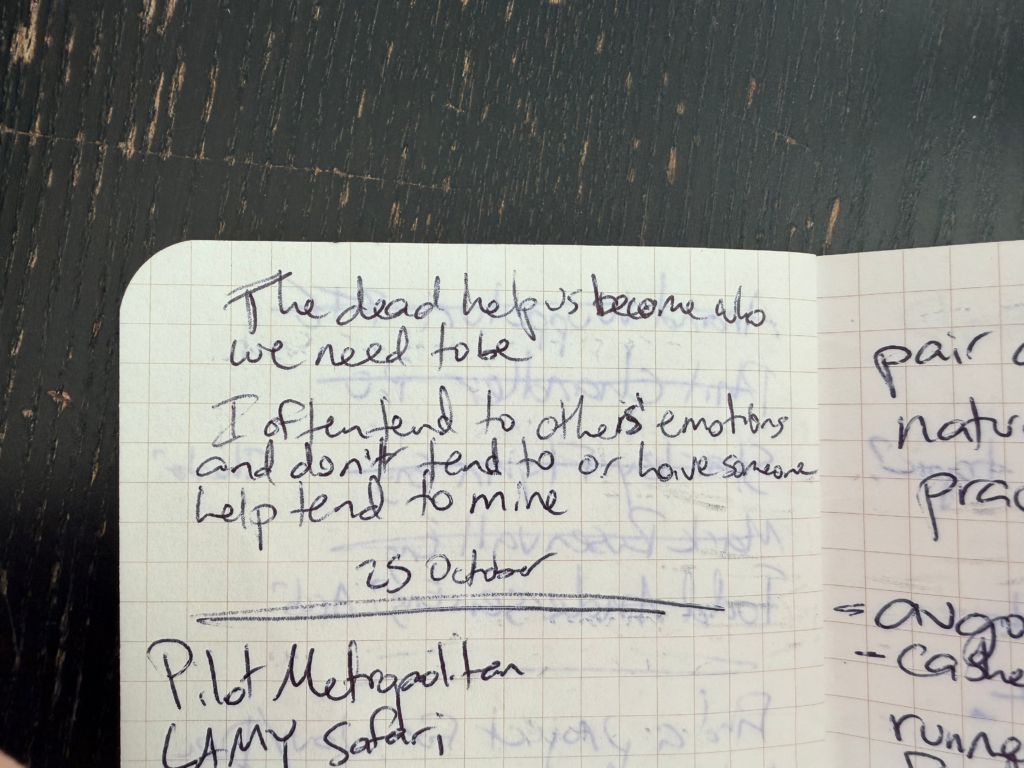 The dead help us become who
we need to be
I often tend to others' emotions
and don't tend to or have someone
help tend to mine
25 October
Pilot Metropolitan
LAMY Safari
pair
natu
prac
- avgo
- cashe
runne